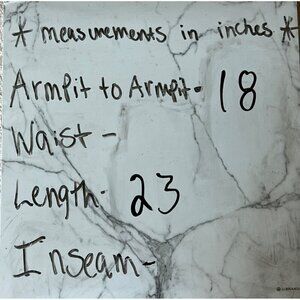 * measurements in inches *
Armpit to Armpit- 18
Waist -
Length- 23
Inseam-